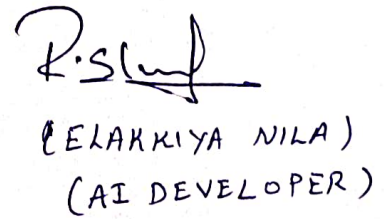 (ELAKKIYA NILA)
(AI DEVELOPER)